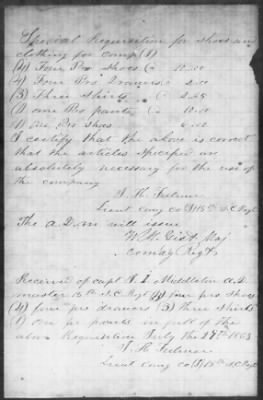 Special Requisition for shoes an
clothing for comp (I)
(4) Four Prs Shoes @ 10.00
(4) Four Prs Drawers 2.00
(3) Three Shirts 2.25
(1) one Pr pants 10.00
(1) one Pr shoes
I certify that the above is correct
that the articles specified are
absolutely necessary for the use of
the company
Lieut comg co (I) 15th S.C. Regt
The a.Q.m will issue
W. M. Gist Maj
comdg Regt
Received of capt Middleton a.Q.
master 15th S.C. Regt (4) four prs shoes
(4) four prs drawers (3) three shirts
(1) one pr pants in full of the
above Requisition July the 29th 1863
Lieut comg co (I) 15th S.C. Regt